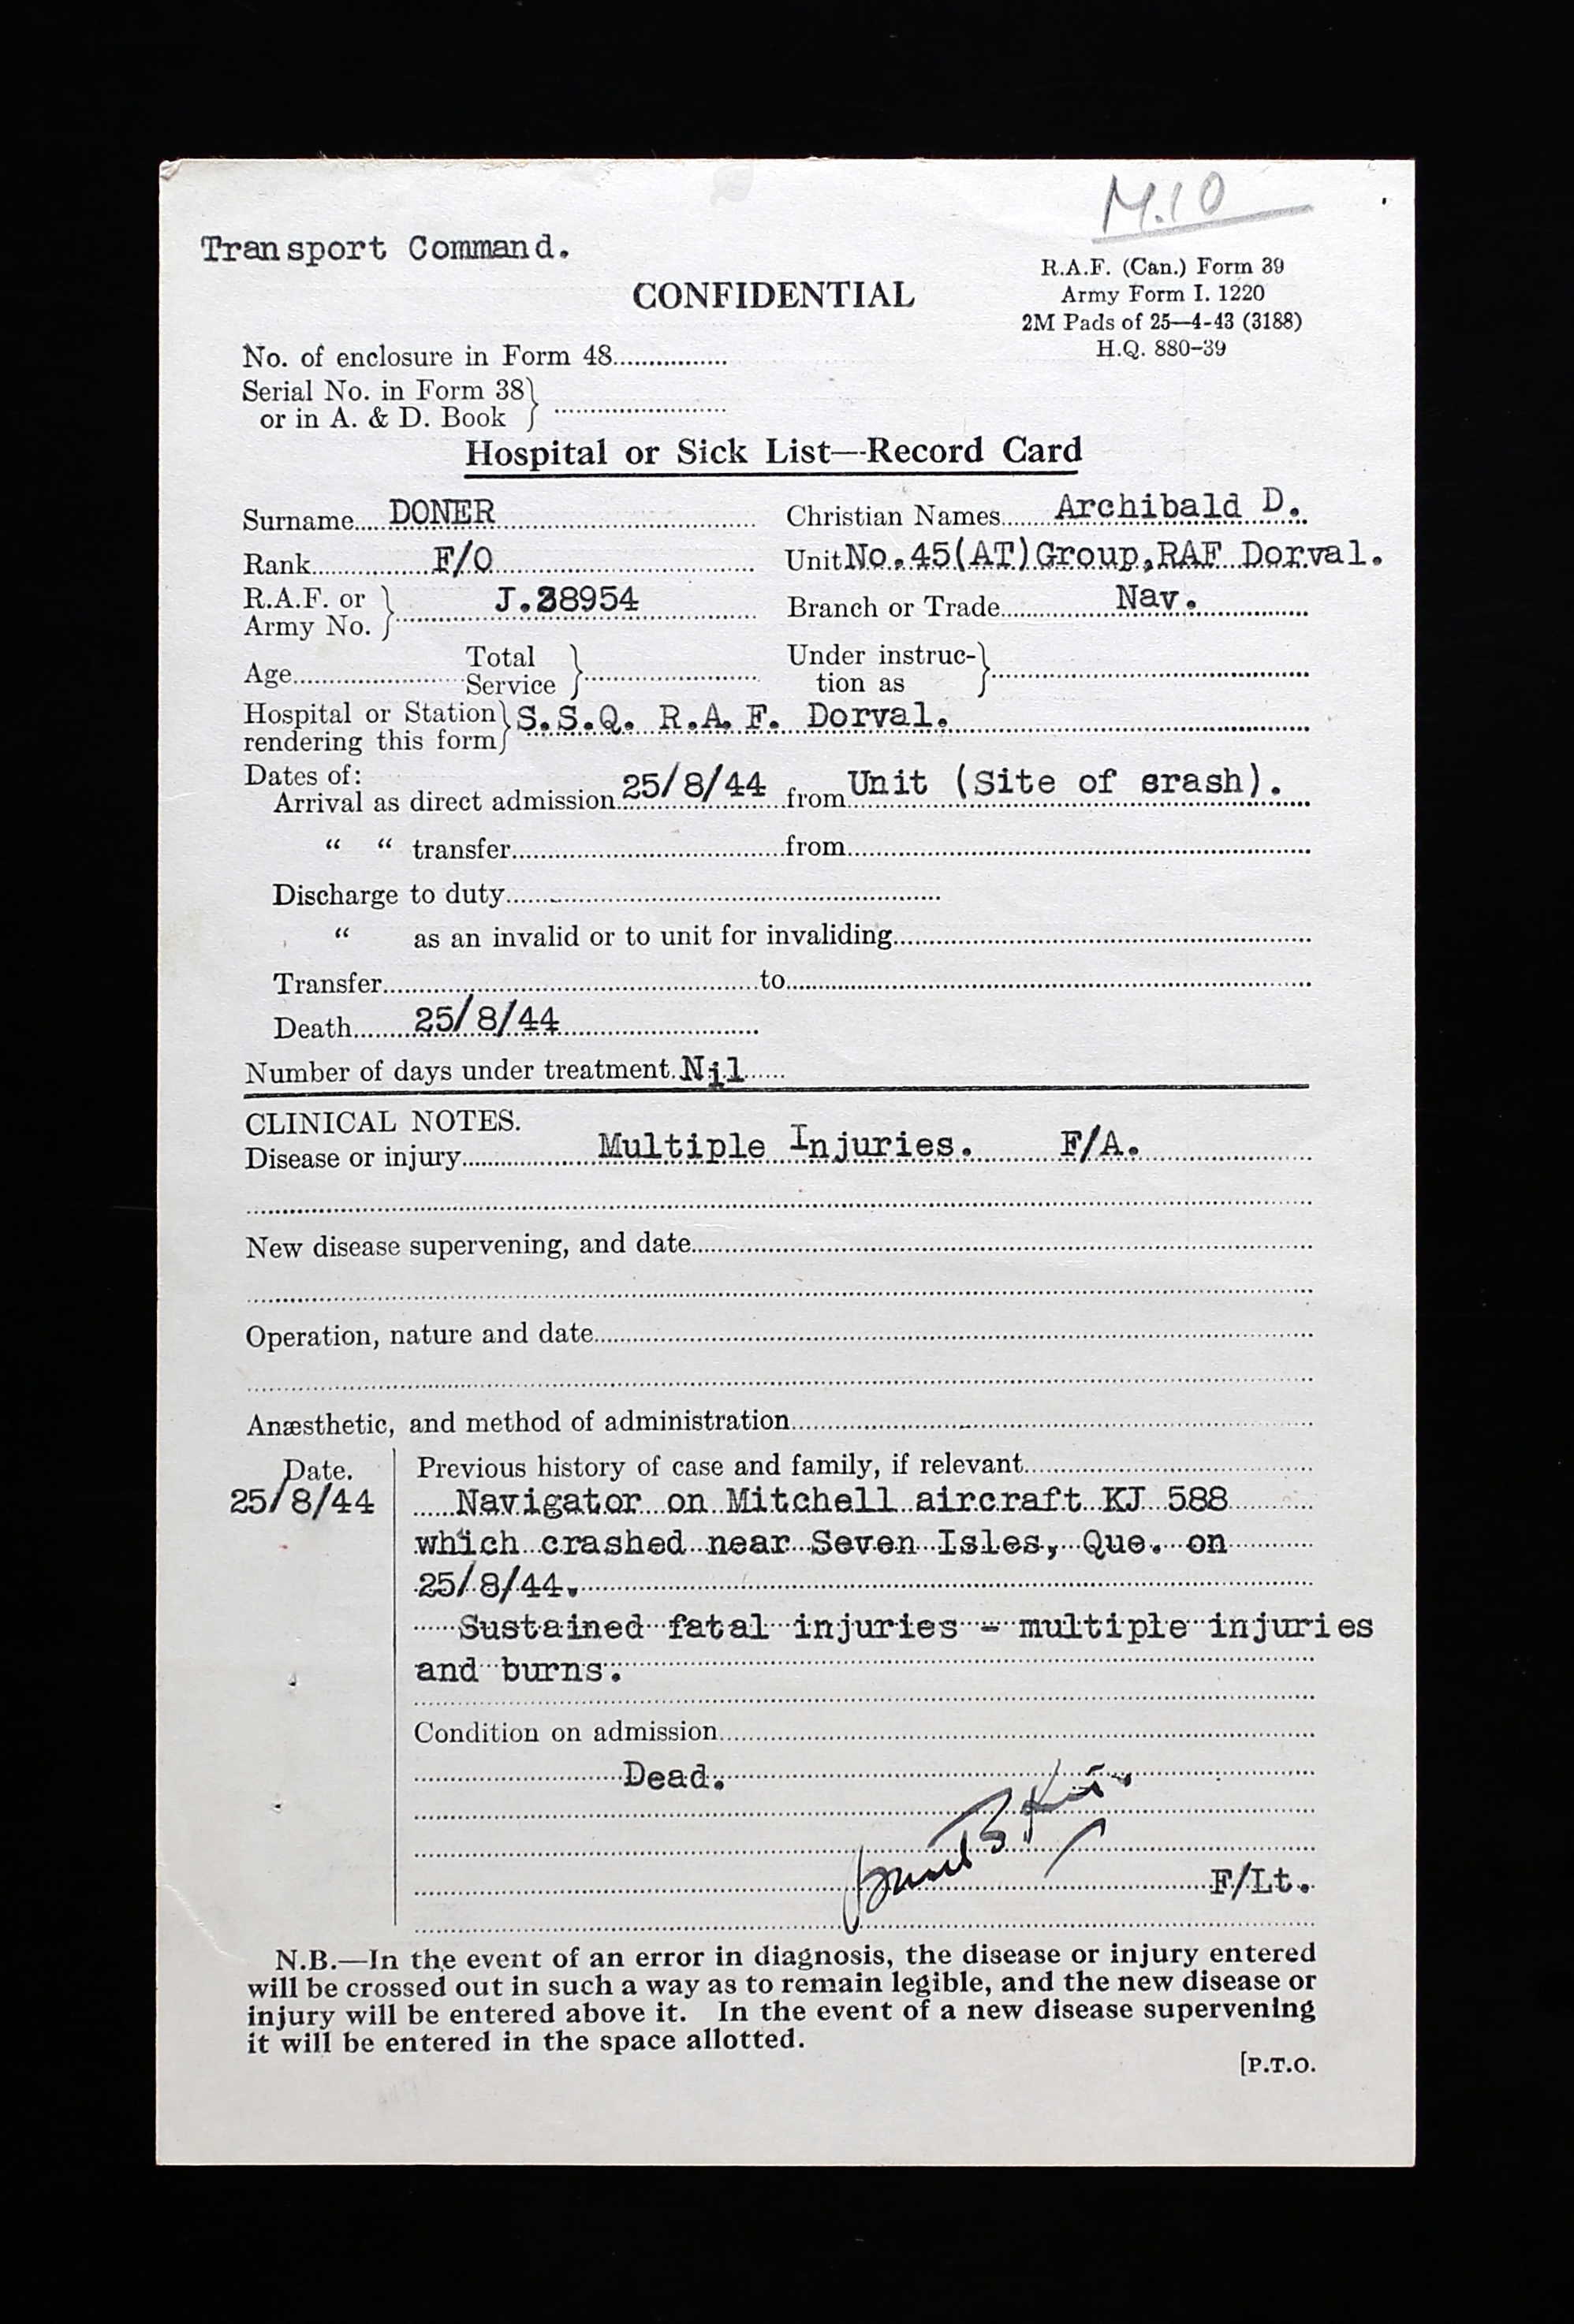 M.10
Transport Command.
R.A.F. (Can.) Form 39
CONFIDENTIAL
Army Form I. 1220
2M Pads of 25—4-43 (3188)
H.Q. 880-39
No. of enclosure in Form 48
Serial No. in Form 38
or in A. & D. Book
Hospital or Sick List—Record Card
Surname DONER Christian Names Archibald D.
Rank F/O Unit No.45(AT)Group,RAF Dorval.
R.A.F. or
Army No. J.38954 Branch or Trade Nav.
Age Total Service Under instruc-
tion as
Hospital or Station
rendering this form S.S.Q. R.A.F. Dorval.
Dates of:
Arrival as direct admission 25/8/44 from Unit (Site of srash).
“ “ transfer from
Discharge to duty
“ as an invalid or to unit for invaliding
Transfer to
Death 25/8/44
Number of days under treatment Nil
CLINICAL NOTES.
Disease or injury Multiple Injuries. F/A.
New disease supervening, and date
Operation, nature and date
Anæsthetic, and method of administration
Date. Previous history of case and family, if relevant
25/8/44 Navigator on Mitchell aircraft KJ 588
which crashed near Seven Isles, Que. on
25/8/44.
Sustained fatal injuries - multiple injuries
and burns.
Condition on admission
Dead.
F/Lt.
N.B.—In the event of an error in diagnosis, the disease or injury entered
will be crossed out in such a way as to remain legible, and the new disease or
injury will be entered above it. In the event of a new disease supervening
it will be entered in the space allotted.
[P.T.O.